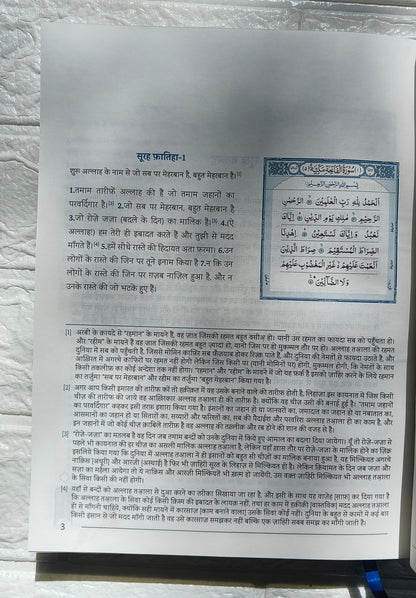 सूरह फ़ातिहा-1
शुरू अल्लाह के नाम से जो सब पर मेहरबान है, बहुत मेहरबान है।[1]
1.तमाम तारीफ़ें अल्लाह की हैं जो तमाम जहानों का
परवर्दिगार है।[2] 2.जो सब पर मेहरबान, बहुत मेहरबान है
3.जो रोज़े जज़ा (बदले के दिन) का मालिक है।[3] 4.(ऐ
अल्लाह!) हम तेरी ही इबादत करते हैं और तुझी से मदद
माँगते हैं।[4] 5.हमें सीधे रास्ते की हिदायत अता फ़रमा। 6.उन
लोगों के रास्ते की जिन पर तूने इनाम किया है 7.न कि उन
लोगों के रास्ते की जिन पर ग़ज़ब नाज़िल हुआ है, और न
उनके रास्ते की जो भटके हुए हैं।
سُوْرَةُ الْفَاتِحَةِ مَكِّيَّةٌ
بِسْمِ اللهِ الرَّحْمٰنِ الرَّحِيْمِ
اَلْحَمْدُ لِلّٰهِ رَبِّ الْعٰلَمِيْنَ الرَّحْمٰنِ
الرَّحِيْمِ مٰلِكِ يَوْمِ الدِّيْنِ اِيَّاكَ
نَعْبُدُ وَ اِيَّاكَ نَسْتَعِيْنُ اِهْدِنَا
الصِّرَاطَ الْمُسْتَقِيْمَ صِرَاطَ الَّذِيْنَ
اَنْعَمْتَ عَلَيْهِمْ غَيْرِ الْمَغْضُوْبِ عَلَيْهِمْ
وَلَا الضَّآلِّيْنَ
[1] अरबी के क़ायदे से "रहमान" के मायने हैं, वह ज़ात जिसकी रहमत बहुत वसीअ हो। यानी उस रहमत का फायदा सब को पहुँचता हो।
और "रहीम" के मायने हैं वह ज़ात जिसकी रहमत बहुत ज़्यादा हो, यानी जिस पर हो मुकम्मल तौर पर हो। अल्लाह तआला की रहमत
दुनिया में सब को पहुँचती है, जिससे मोमिन काफ़िर सब फ़ैज़याब होकर रिज़्क़ पाते हैं, और दुनिया की नेमतों से फायदा उठाते हैं, और
आख़िरत में अगरचे काफिरों पर रहमत नहीं होगी लेकिन जिस किसी पर (यानी मोमिनों पर) होगी, मुकम्मल होगी, कि नेमतों के साथ
किसी तकलीफ का कोई अन्देशा तक नहीं होगा। "रहमान" और "रहीम" के मायने में जो यह फ़र्क़ है इसको ज़ाहिर करने के लिये रहमान
का तर्जुमा "सब पर मेहरबान" और रहीम का तर्जुमा "बहुत मेहरबान" किया गया है।
[2] अगर आप किसी इमारत की तारीफ करें तो हक़ीक़त में वह उसके बनाने वाले की तारीफ होती है, लिहाज़ा इस कायनात में जिस किसी
चीज़ की तारीफ की जाये वह आख़िरकार अल्लाह तआला ही की तारीफ़ है। क्योंकि वह चीज़ उसी की बनाई हुई है। "तमाम जहानों
का परवर्दिगार" कहकर इसी तरफ़ इशारा किया गया है। इंसानों का जहान हो या जानवरों का, जमादात का जहान हो या नबातात का,
आसमानों का जहान हो या सितारों का, सय्यारों और फरिश्तों का, सब की पैदाईश और परवरिश अल्लाह तआला ही का काम है, और
इन जहानों में जो कोई चीज़ क़ाबिले तारीफ़ है वह अल्लाह की तख़्लीक़ और रब होने की शान की वजह से है।
[3] "रोज़े-जज़ा" का मतलब है वह दिन जब तमाम बन्दों को उनके दुनिया में किये हुए आमाल का बदला दिया जायेगा। यूँ तो रोज़े-जज़ा से
पहले भी कायनात की हर चीज़ का असली मालिक अल्लाह तआला है, लेकिन यहाँ ख़ास तौर पर रोज़े-जज़ा के मालिक होने का ज़िक्र
इसलिये किया गया कि दुनिया में अल्लाह तआला ने ही इंसानों को बहुत सी चीज़ों का मालिक बनाया हुआ है, यह मिल्कियत अगरचे
नाक़िस (अधूरी) और आरज़ी (अस्थाई) है फिर भी ज़ाहिरी सूरत के लिहाज़ से मिल्कियत ही है। लेकिन क़ियामत के दिन जब जज़ा और
सज़ा का मर्हला आयेगा तो ये नाक़िस और आरज़ी मिल्कियतें भी ख़त्म हो जायेंगी, उस वक़्त ज़ाहिरी मिल्कियत भी अल्लाह तआला
के सिवा किसी की नहीं होगी।
[4] यहाँ से बन्दों को अल्लाह तआला से दुआ करने का तरीक़ा सिखाया जा रहा है, और इसी के साथ यह वाज़ेह (साफ़) कर दिया गया है
कि अल्लाह तआला के सिवा कोई किसी क़िस्म की इबादत के लायक़ नहीं, तथा हर काम में हक़ीक़ी (वास्तविक) मदद अल्लाह तआला
ही से माँगनी चाहिये, क्योंकि सही मायने में कारसाज़ (काम बनाने वाला) उसके सिवा कोई नहीं। दुनिया के बहुत से कामों में कई बार
किसी इंसान से जो मदद माँगी जाती है वह उसे कारसाज़ समझकर नहीं बल्कि एक ज़ाहिरी सबब समझ कर माँगी जाती है।
3